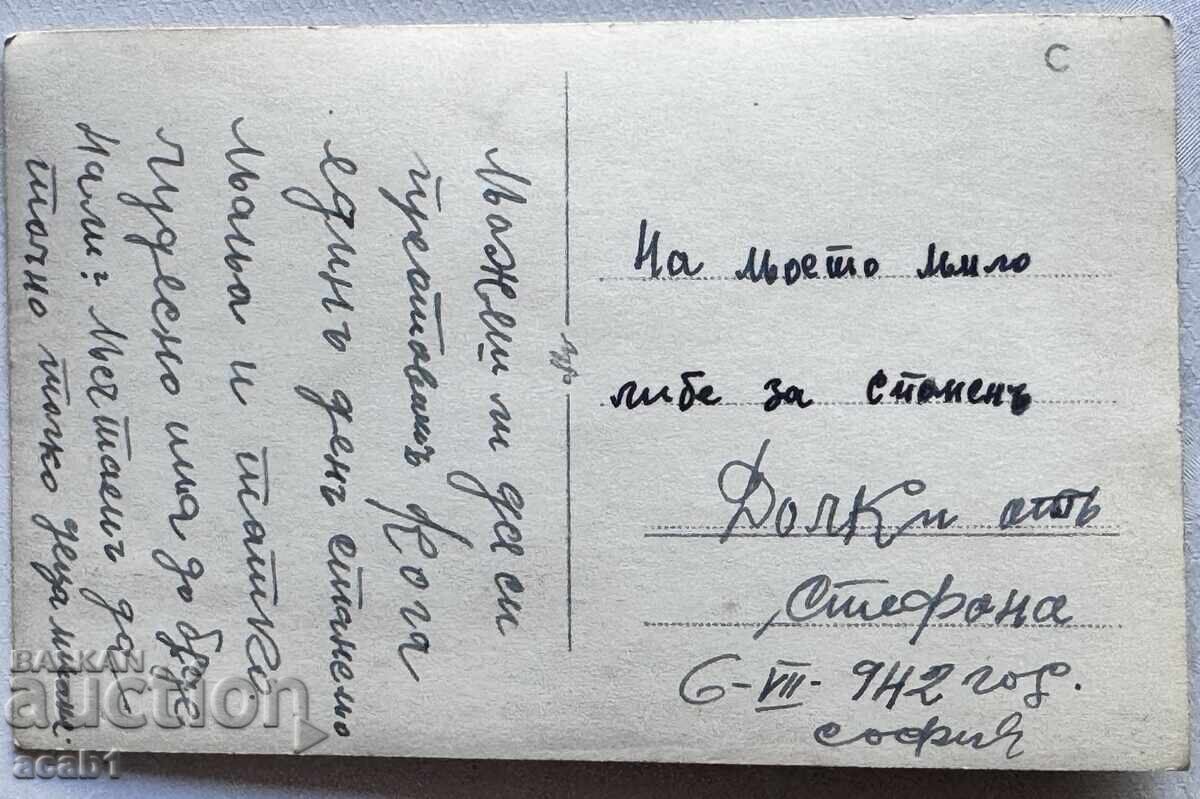 Можеш ли да си
представишъ Кога
единъ день станемо
мама и татко
чудесно има да бъде
нали? Мечтаемъ да с
точно толко деца
С
На моето мило
либе за споменъ
Долки отъ
Стефана
6-VII-942 год.
София
BALKAN
auction
acab1